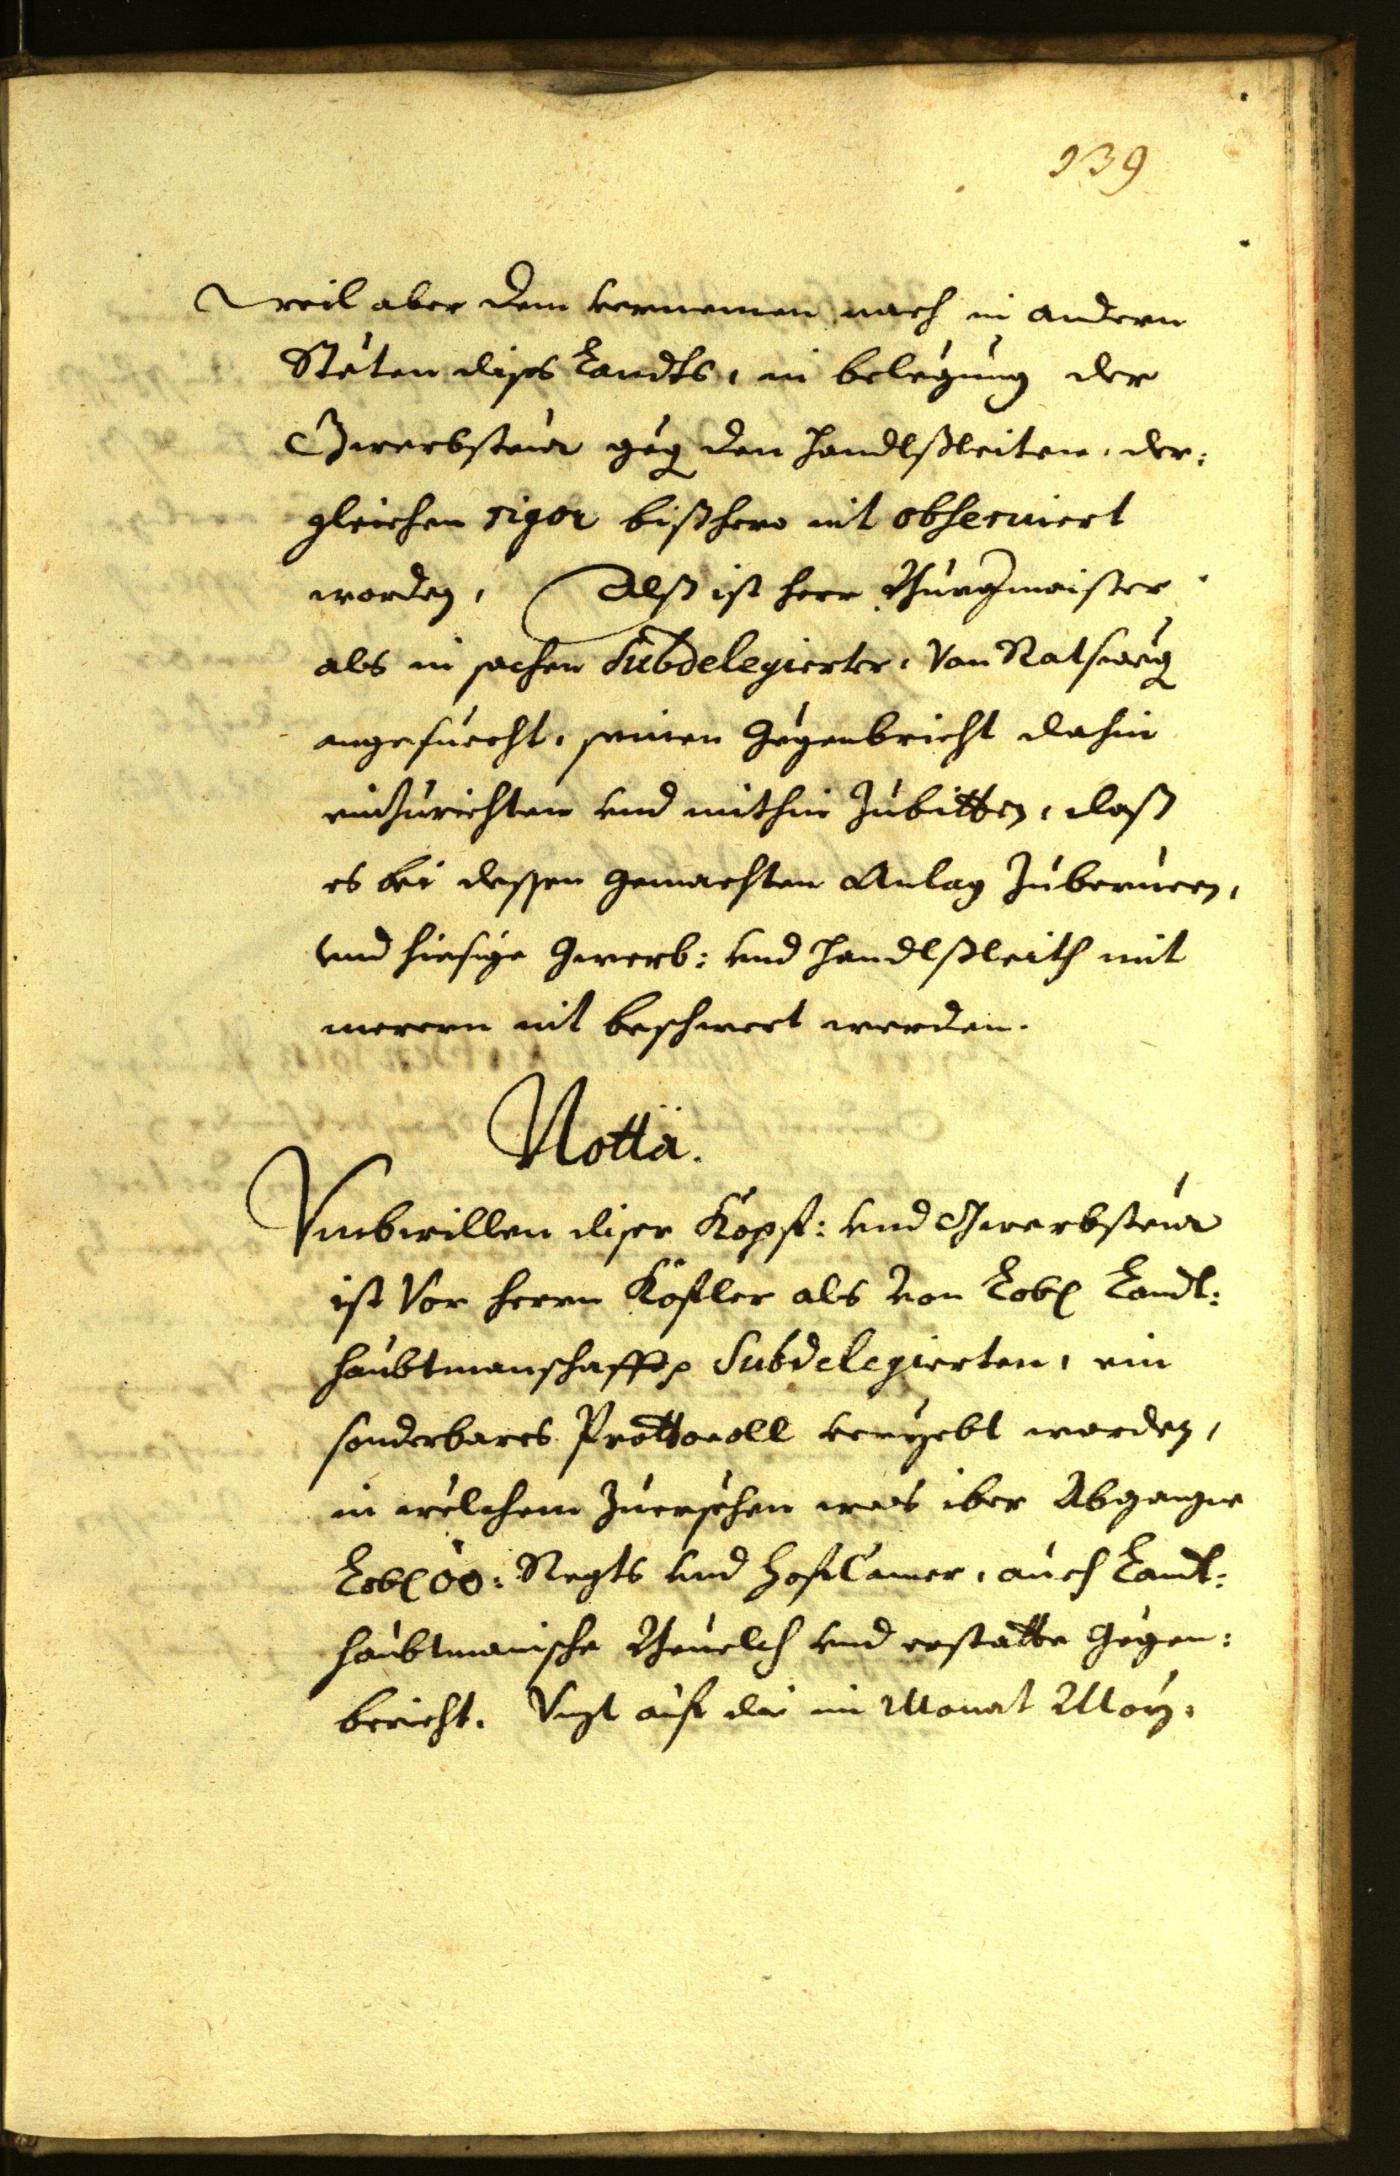 139
Weil aber dem vernemen nach in andern
Stëten dises Landts, in belegung der
Gwerbsteur geg den Handlßleiten, der:
gleichen rigor bißhero nit obseruiert
worden, Alß ist Herr Burgmaister
als in sachen Subdelegierter, Von Ratsweg
angesuecht, seinen Gegenbricht dahin
einzurichten vnd mithin zubitten, daß
es bei dessen gemachten Anlag zuberuen,
vnd hiesige Gwerb: vnd Handlßleith mit
merern nit beschwert werden.
Notta.
Vmbwillen diser Kopf: vnd Gwerbsteur
ist Vor Herrn Kofler als von Lobl Landt:
haubtmanschafft Subdelegierten, ein
sonderbares Prottocoll veryebt worden,
in welchem zuersehen was iber Abgangne
Lobl oö: Regts vnd HofCamer, auch Landt:
haubtmanische Beuelch vnd erstatte Gegen:
bericht. Vnst auf die im Monat May,